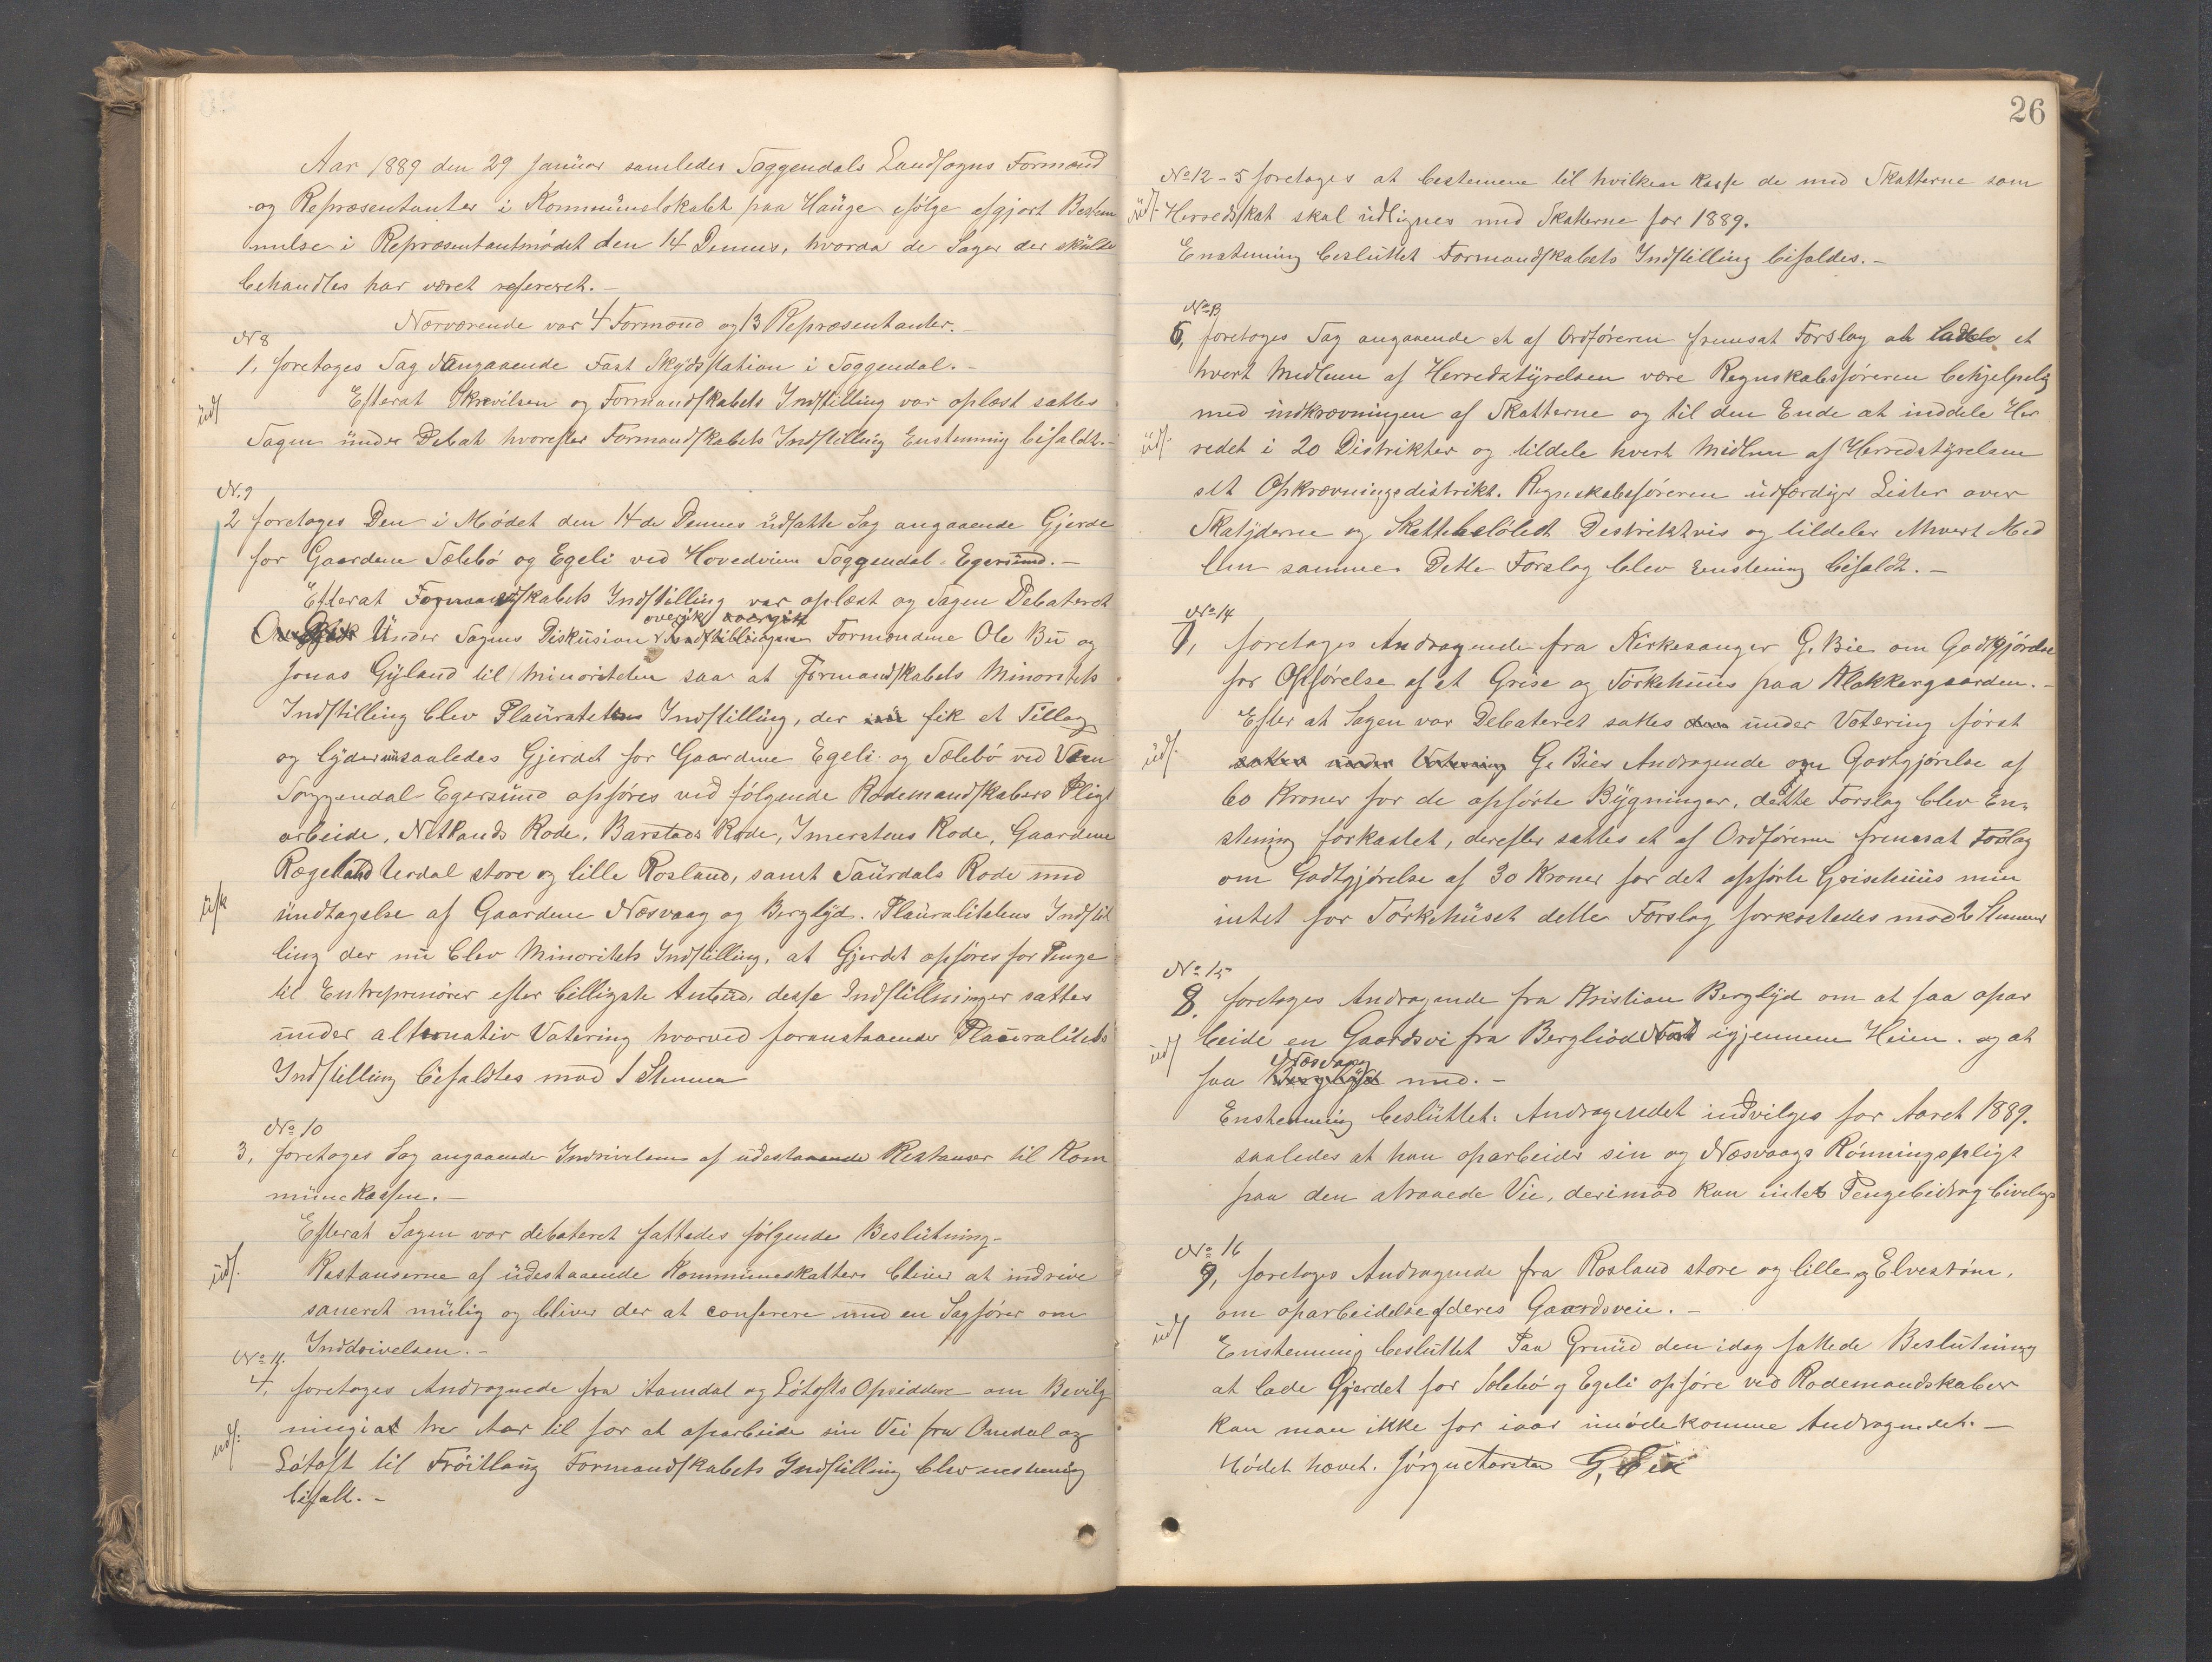 Aar 1889 den 29 Januar samledes Soggendals Landsogns Formænd
og Repræsentanter i Kommunelokalet paa Hauge ifølge afgjort Bestem
melse i Repræsentantmødet den 14 Dennes, hvorda de Sager der skulde
behandles har været refereret.-
Nærværende var 4 Formænd og 13 Repræsentanter.-
N 8
1, foretoges Sag angaaende Fast Skydsstation i Soggendal.-
Efterat Skrivelsen og Formandskabets Indstilling var oplæst sattes
üdf
Sagen under Debat hvorefter Formandskabets Indstilling Enstemmig bifaldt.-
N. 9
2 foretoges Den i Mødet den 14de Dennes udsatte Sag angaaende Gjerde
for Gaardene Sælebø og Egeli ved Hovedveien Soggendal-Egersund.-
Efterat Formandskabets Indstilling var oplæst og Sagen Debateret
overgik
Under Sagens Diskusion Formændene Ole Bu og
Jonas Gyland til Minoriteten saa at Formandskabets Minoritets
Indstilling blev Plauratetens Indstilling, der fik et Tillæg
og lyder nu saaledes Gjerdet for Gaardene Egeli og Sælebø ved Veien
Soggendal-Egersund opføres ved følgende Rodemandskabers Pligt
arbeide, Netlands Rode, Barstads Rode, Imerstens Rode, Gaardene
Rægeland Uerdal store og lille Rosland, samt Saurdals Rode med
undtagelse af Gaardene Næsvaag og Berglyd. Plauralitetens Indstil
ling der nu blev Minoritets Indstilling, at Gjerdet opføres for Penge
til Entreprenører efter billigste Anbud, desse Indstillninger sattes
under alternativ Votering hvorved foranstaaende Plauralitets
Indstilling bifaldtes mod 1 Stemme
No 10
3, foretoges Sag angaaende Inddrivelsen af udestaaende Restanser til Kom
munekassen.-
Efterat Sagen var debateret fattedes følgende Beslutning-
üdf.
Restanserne af üdestaaende Kommuneskatter bliver at inddrive
saneret mulig og bliver der at conferere med en Sagfører om
Inddrivelsen.-
No 11.
4, foretoges Andragende fra Aamdal og Løtofts Opsiddere om Bevilg
ning i at tre Aar til for at oparbeide sin Vei fra Omdal og
udf.
Løtoft til Frøitlaug Formandskabets Indstilling blev enstemmig
bifalt.-
26
No 12 - 5 foretoges at bestemme til hvilken Kasse de med Skatterne som
üdf. Herredsskat skal udlignes med Skatterne for 1889.
Enstemmig besluttet Formandskabets Indstilling bifaldes.-
No 13
6, foretoges Sag angaaende et af Ordføreren fremsat Forslag at lade et
hvert Medlem af Herredstyrelsen være Regnskabsføreren behjelpelig
med indkrævningen af Skatterne og til den Ende at inddele Her
üdf.
redet i 20 Distrikter og tildele hvert Medlem af Herredstyrelsen
sit Opkrævningsdistrikt. Regnskabsføreren udfærdiger Lister over
Skatyderne og Skattebeløbet Destriktvis og tildeler ethvert Med
lem samme. Dette Forslag blev Enstemmig bifaldt.-
No 14
7, foretoges Andragende fra Kirkesanger G. Bie om Godtgjørelse
for Opførelse af et Grise og Tørkehuus paa Klokkergaarden.-
Efter at Sagen var Debateret sattes under Votering først
üdf.
G. Bies Andragende om Godtgjørelse af
60 Kroner for de opførte Bygninger, dette Forslag blev En-
stemig forkastet, derefter sattes et af Ordføreren fremsat Forslag
om Godtgjørelse af 30 Kroner for det opførte Grisehuus men
intet for Tørkehuset dette Forslag forkastedes mod 2 Stemmer
No 15
8. foretoges Andragende fra Kristian Berglyd om at faa opar
üdf
beide en Gaardsvei fra Bergliød igjennem Heien. og at
Næsvaag
faa med.-
Enstemmig besluttet: Andragendet indvilges for Aaret 1889.
saaledes at han oparbeider sin og Næsvaags Rønningspligt
paa den attraaede Vei, derimod kan intet Pengebidrag bivelges
No 16
9, foretoges Andragende fra Rosland store og lille og Elvestrøm,
om oparbeidelse af deres Gaardsveie.-
üdf
Enstemmig besluttet Paa Grund den idag fattede Beslutning
at lade Gjerdet for Selebø og Egeli opføre ved Rodemandskaber
kan man ikke for iaar imødekomme Andragendet.-
Mødet hævet. G. Bie